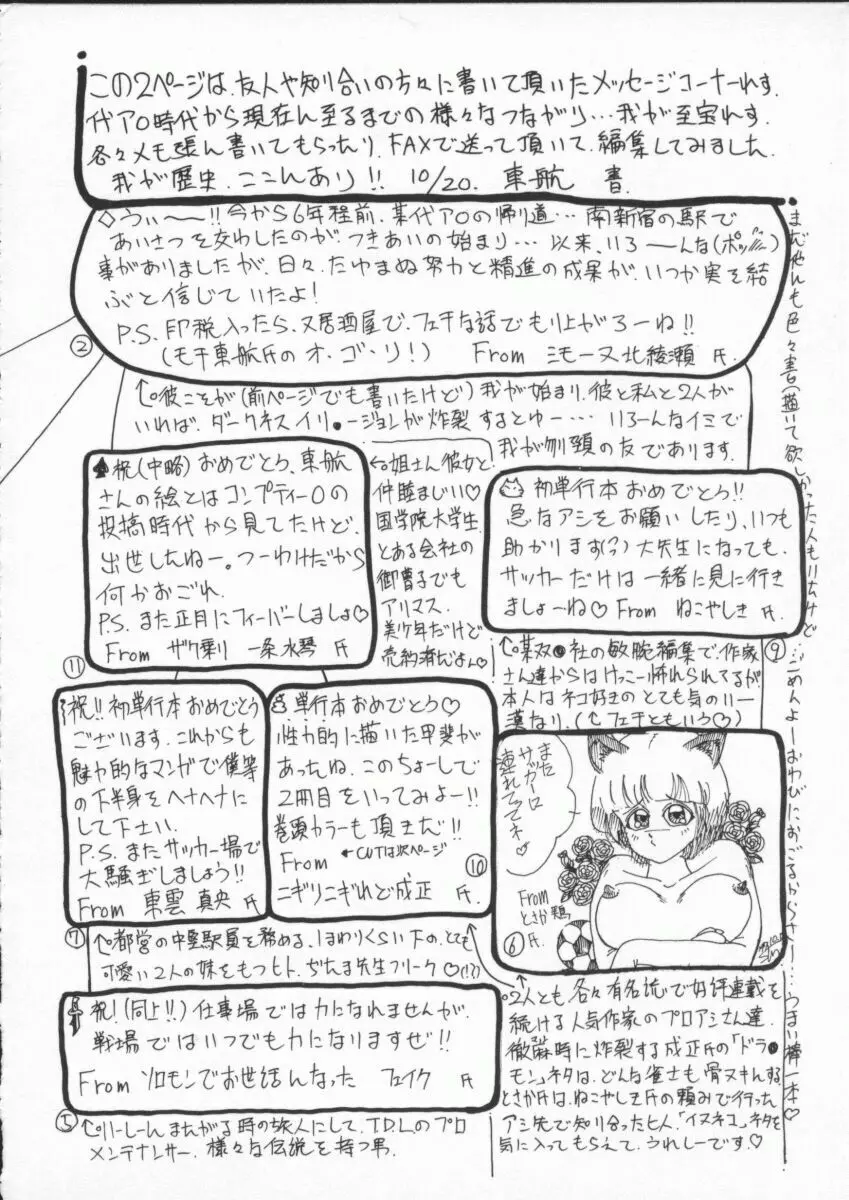 この2ページは、友人や知り合いの方々に書いて頂いたメッセージコーナーれす.
代アO時代から現在ん至るまでの様々なつながり…我が至宝れす.
各々メモ張ん書いてもらったり、FAXで送って頂いて、編集してみました.
我が歴史、ここんあり!! 10/20. 東航 書
◇うぃ〜〜!!今から6年程前、某代アOの帰り道…南新宿の駅で
あいさつを交わしたのが、つきあいの始まり…以来、いろーーんな(ポッ)
事がありましたが、日々、たゆまぬ努力と精進の成果が、いつか実を結
ぶと信じていたよ!
P.S. 印税入ったら、又居酒屋で、フェチな話でもり上がろーね!!
(モチ東航氏のオ・ゴ・リ!) From ミモーヌ北綾瀬 氏.
②
↑彼こそが(前ページでも書いたけど)我が始まり、彼と私と2人が
いれば、ダークネスイリ●ージョンが炸裂するとゆー…いろーんなイミで
我が刎頸の友であります.
♠祝(中略)おめでとう、東航
さんの絵とはコンプティーOの
投稿時代から見てたけど、
出世したねー。つーわけだから
何かおごれ.
P.S. また正月にフィーバーしましょ♡
From ザク乗り 一条水琴 氏
⑪
←姐さん彼女と
仲睦まじい♡
国学院大学生.
とある会社の
御曹子でも
アリマス.
美少年だけど
売約済だよん♡
初単行本おめでとう!!
急なアシをお願いしたり、いつも
助かります(?)大先生になっても、
サッカーだけは一緒に見に行き
ましょーね♡ From ねこやしき 氏.
⑨
↑某双●社の敏腕編集で、作家
さん達からはけっこー怖れられてるが
本人はネコ好きのとても気のいー
漢なり.(↑フェチともいう♡)
祝!!初単行本おめでとう
ございます.これからも
魅力的なマンガで僕等
の下半身をヘナヘナに
して下さい.
P.S. またサッカー場で
大騒ぎしましょう!!
From 東雲 真央 氏
⑦
単行本おめでとう♡
性力的に描いた甲斐が
あったね、このちょーしで
2冊目をいってみよー!!
巻頭カラーも頂きだ!!
From ←CUTは次ページ
ニギリニギれど成正 氏.
⑩
またサッカーに
連れてってネ♡
From
とさか鶏
⑥氏.
↑都営の中堅駅員を務める、1まわりくらい下の、とても
可愛い2人の妹をもつヒト、ぢたま先生フリーク♡(!?)
祝!(同上!!)仕事場では力になれませんが、
戦場ではいつでも力になりますぜ!!
From ソロモンでお世話んなった フェイク 氏
⑤
↑りーしーんまんがる時の旅人にして、T.D.L.のプロ
メンテナンサー、様々な伝説を持つ男.
2人とも、各々有名誌で好評連載を
続ける人気作家のプロアシさん達.
徹麻時に炸裂する成正氏の「ドラ●
モン」ネタは、どんな雀士も骨ヌキんする
とさか氏は、ねこやしき氏の頼みで行った
アシ先で知り合ったヒト、「イヌネコ」ネタを
気に入ってもらえて、うれしーです.♡
まだやんも色々書(描)いて欲しかった人もいたけど…ごめんよーおわびにおごるからさー…うまい棒一本♡